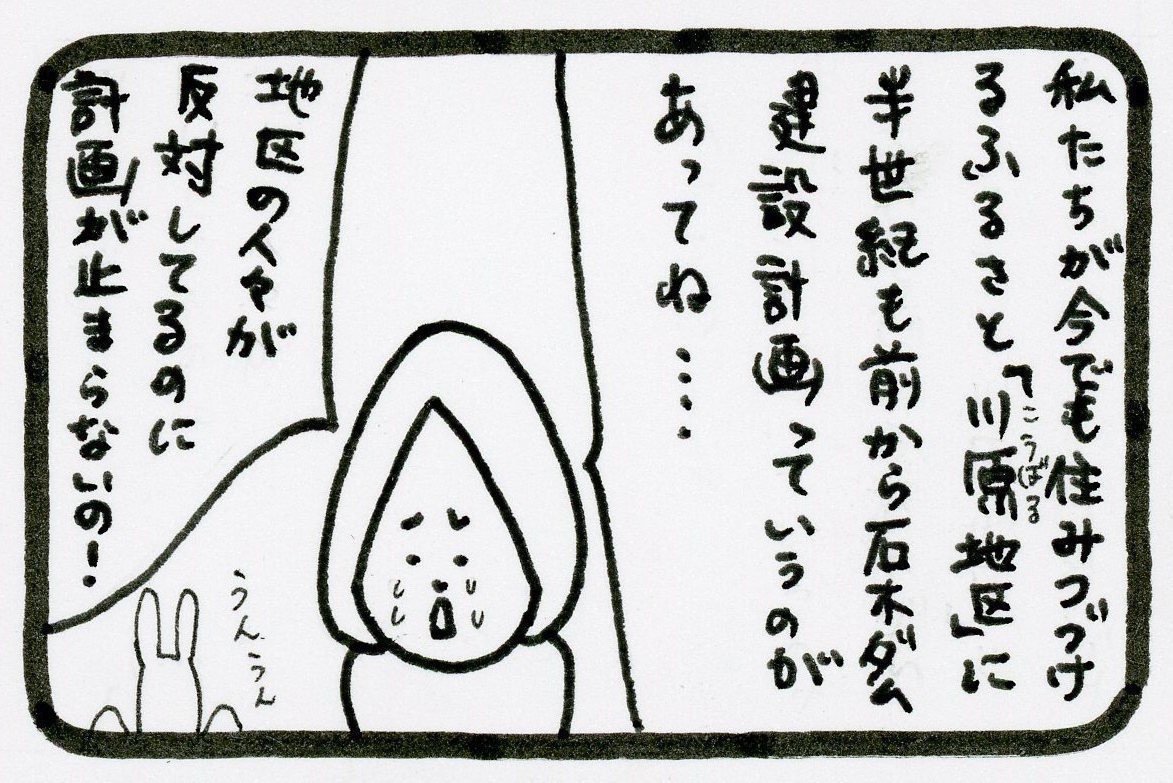 私たちが今でも住みつづけ
るふるさと「川原地区」に
こうばる
半世紀も前から石木ダム
建設計画っていうのが
あってね・・・・
地区の人々が
反対してるのに
計画が止まらないの!
うんうん